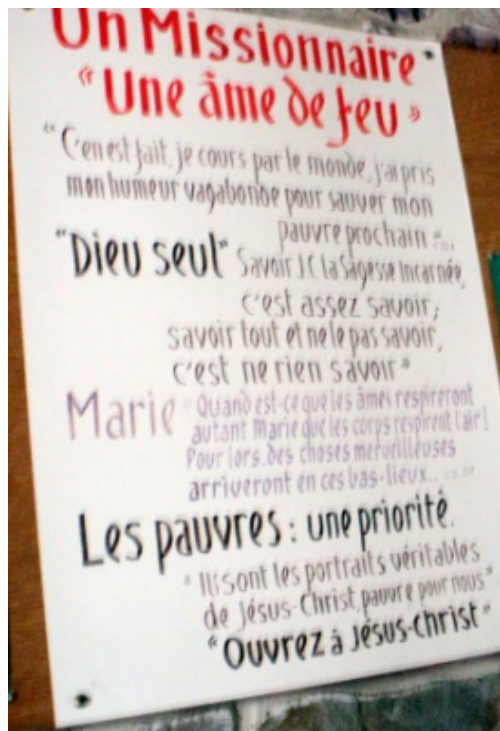 Un Missionnaire
"Une âme de feu"
"C'en est fait, je cours par le monde, j'ai pris
mon humeur vagabonde pour sauver mon
pauvre prochain "...
"Dieu seul" Savoir J.C la Sagesse Incarnée,
c'est assez savoir;
savoir tout et ne le pas savoir,
c'est ne rien savoir"
Marie "Quand est-ce que les âmes respireront
autant Marie que les corps respirent l'air!
Pour lors, des choses merveilleuses
arriveront en ces bas-lieux..
Les pauvres : une priorité.
"Ils sont les portraits véritables
de Jésus-Christ, pauvre pour nous"
"Ouvrez à Jésus-Christ"